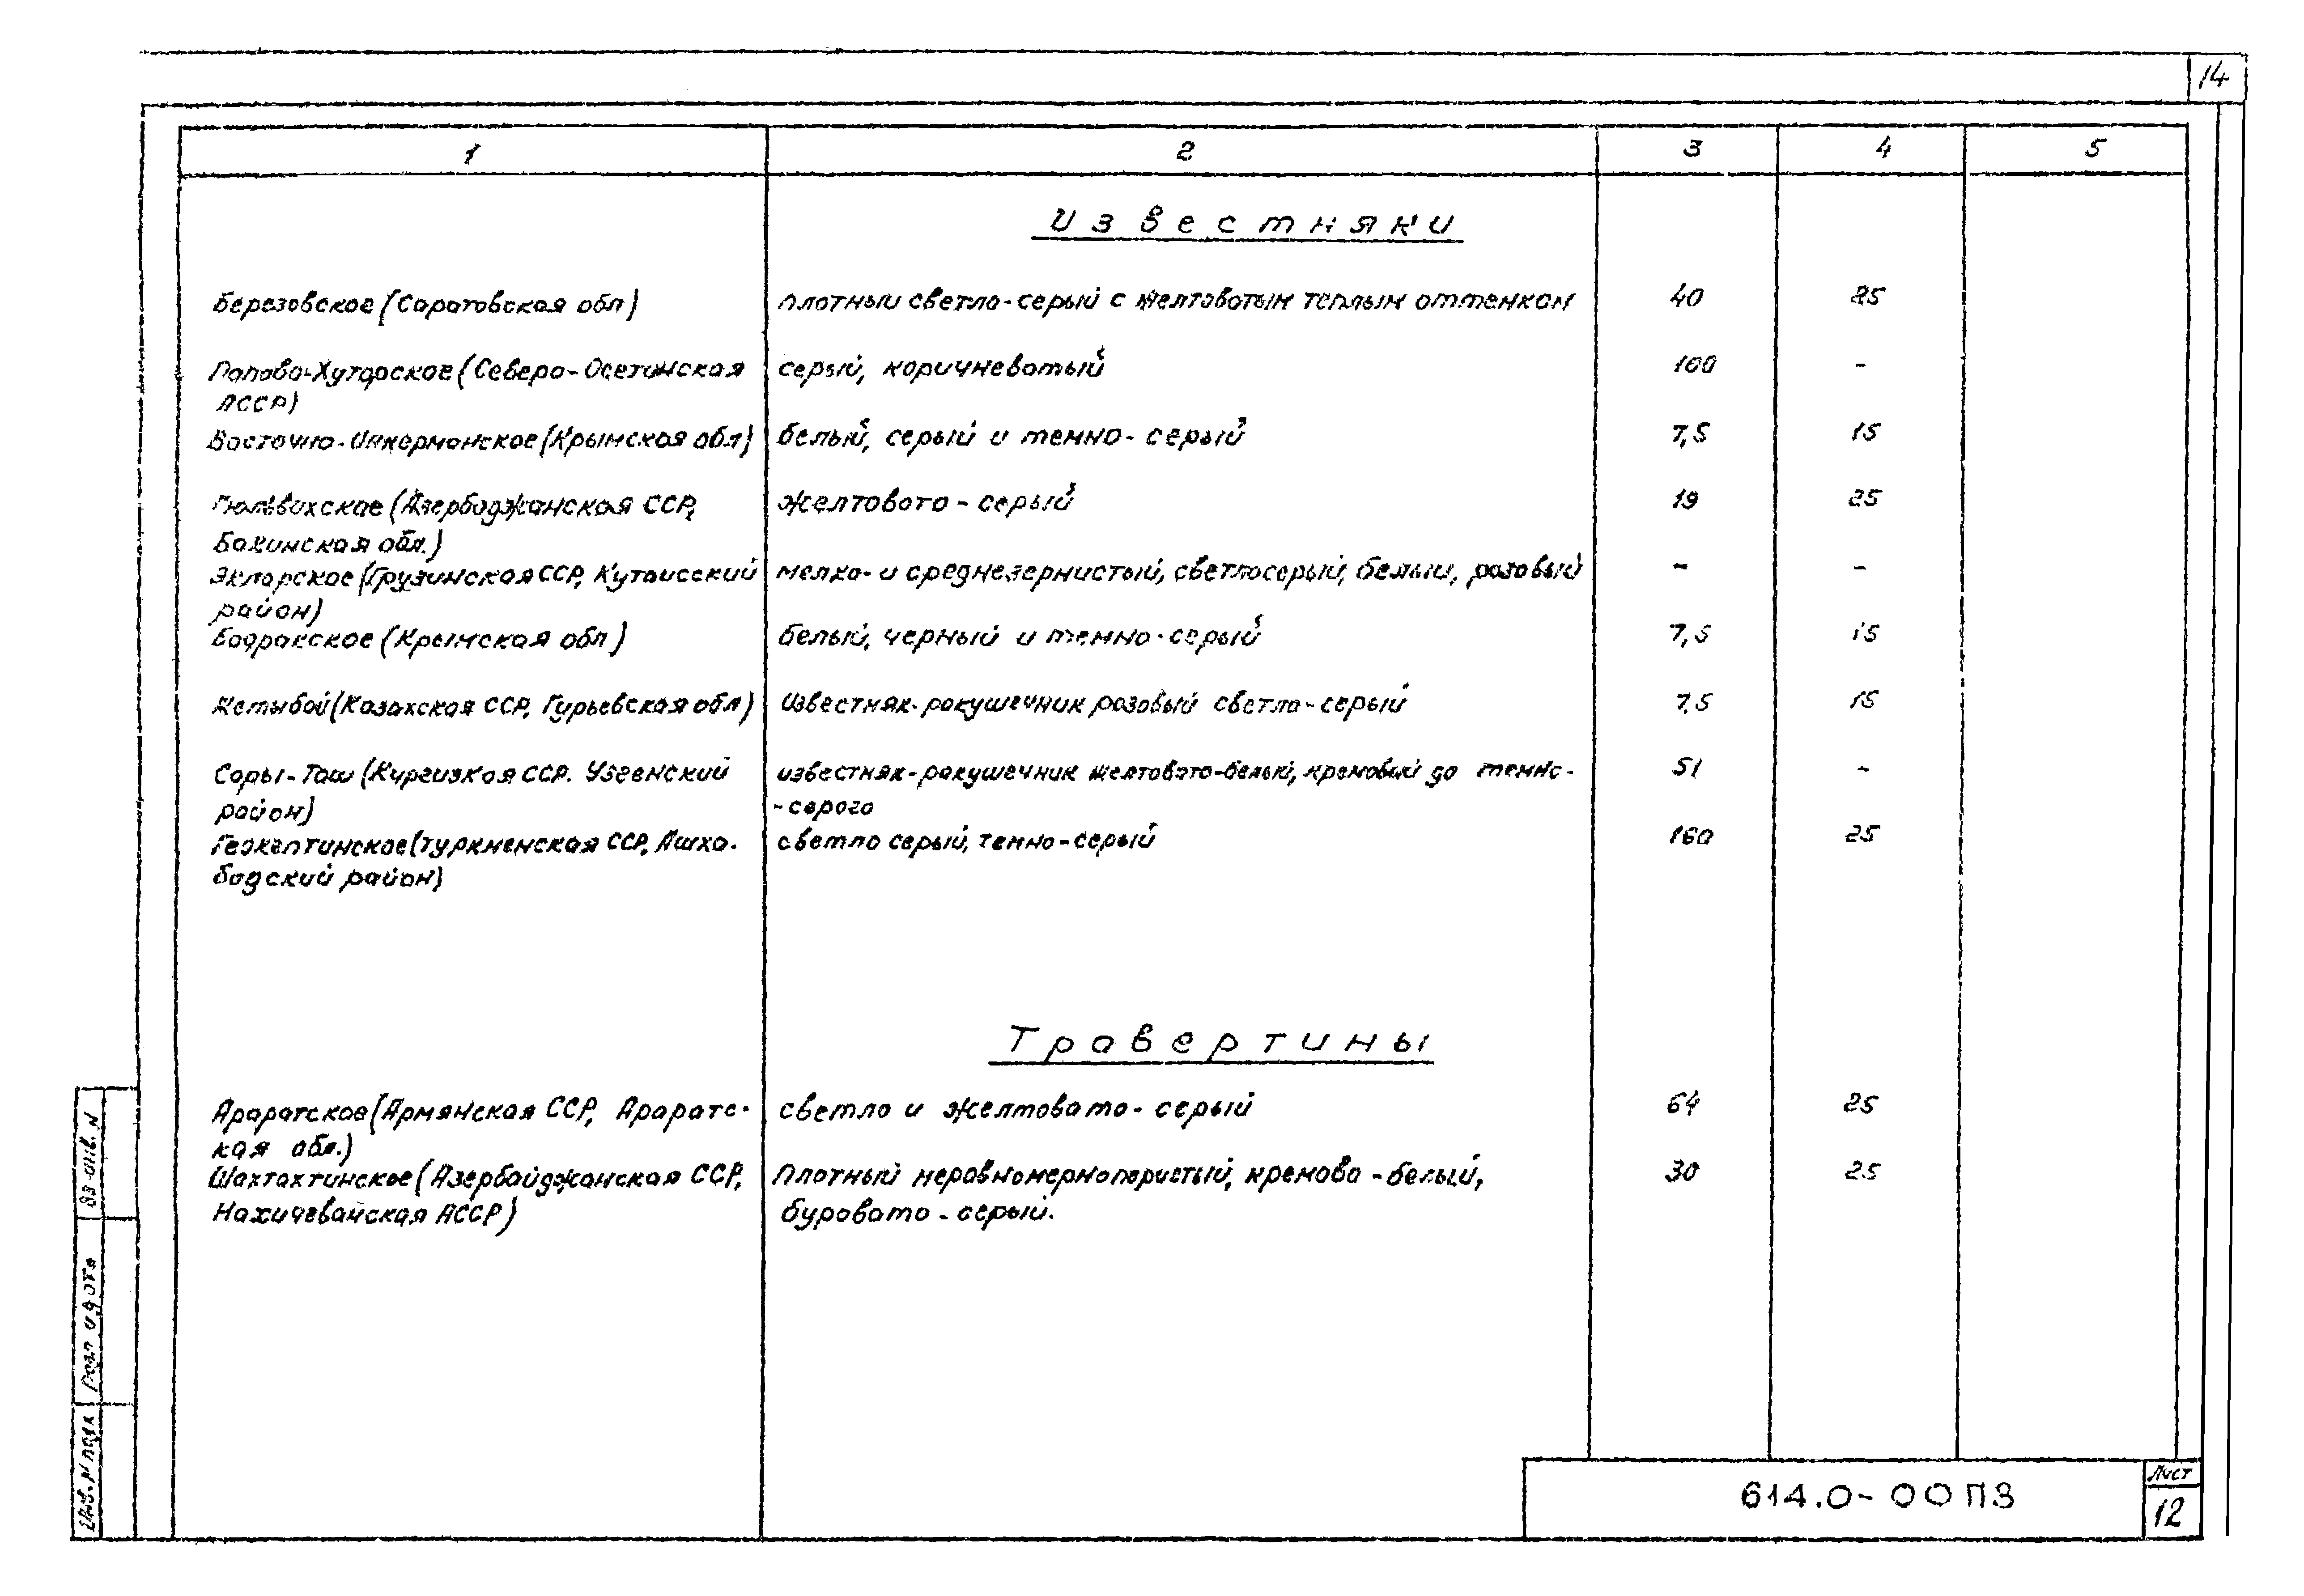 14
1 2 3 4 5
Известняки
Березовское (Саратовская обл) плотный светло-серый с желтоватым теплым оттенком 40 25
Попово-Хуторское (Северо-Осетинская серый, коричневатый 100 -
АССР)
Восточно-Инкерманское (Крымская обл) белый, серый и темно-серый 7,5 15
(Азербаджанская ССР, желтовато-серый 19 25
Бакинская обл.)
Экларское (Грузинская ССР, Кутаисский мелко- и среднезернистый, светлосерый, белый, розовый - -
район)
Бодракское (Крымская обл) белый, черный и темно-серый 7,5 15
Жетыбой (Казахская ССР, Гурьевская обл) Известняк-ракушечник розовый светло-серый 7,5 15
Сары-Таш (Киргизкая ССР. Узгенский известняк-ракушечник желтовато-белый, кремовый до темно- 51 -
район) -серого
Геокептинское (Туркменская ССР, Ашха- светло серый, темно-серый 160 25
бадский район)
Травертины
Араратское (Армянская ССР, Араратс- светло и желтовато-серый 64 25
кая обл.)
Шахтахтинское (Азербайджанская ССР, Плотный неравномернопористый, кремово-белый, 30 25
Нахичевайская АССР) буровато-серый.
Вз. инв. N
Подп и дата
Инв. N подл
614.0-00ПЗ
Лист
12